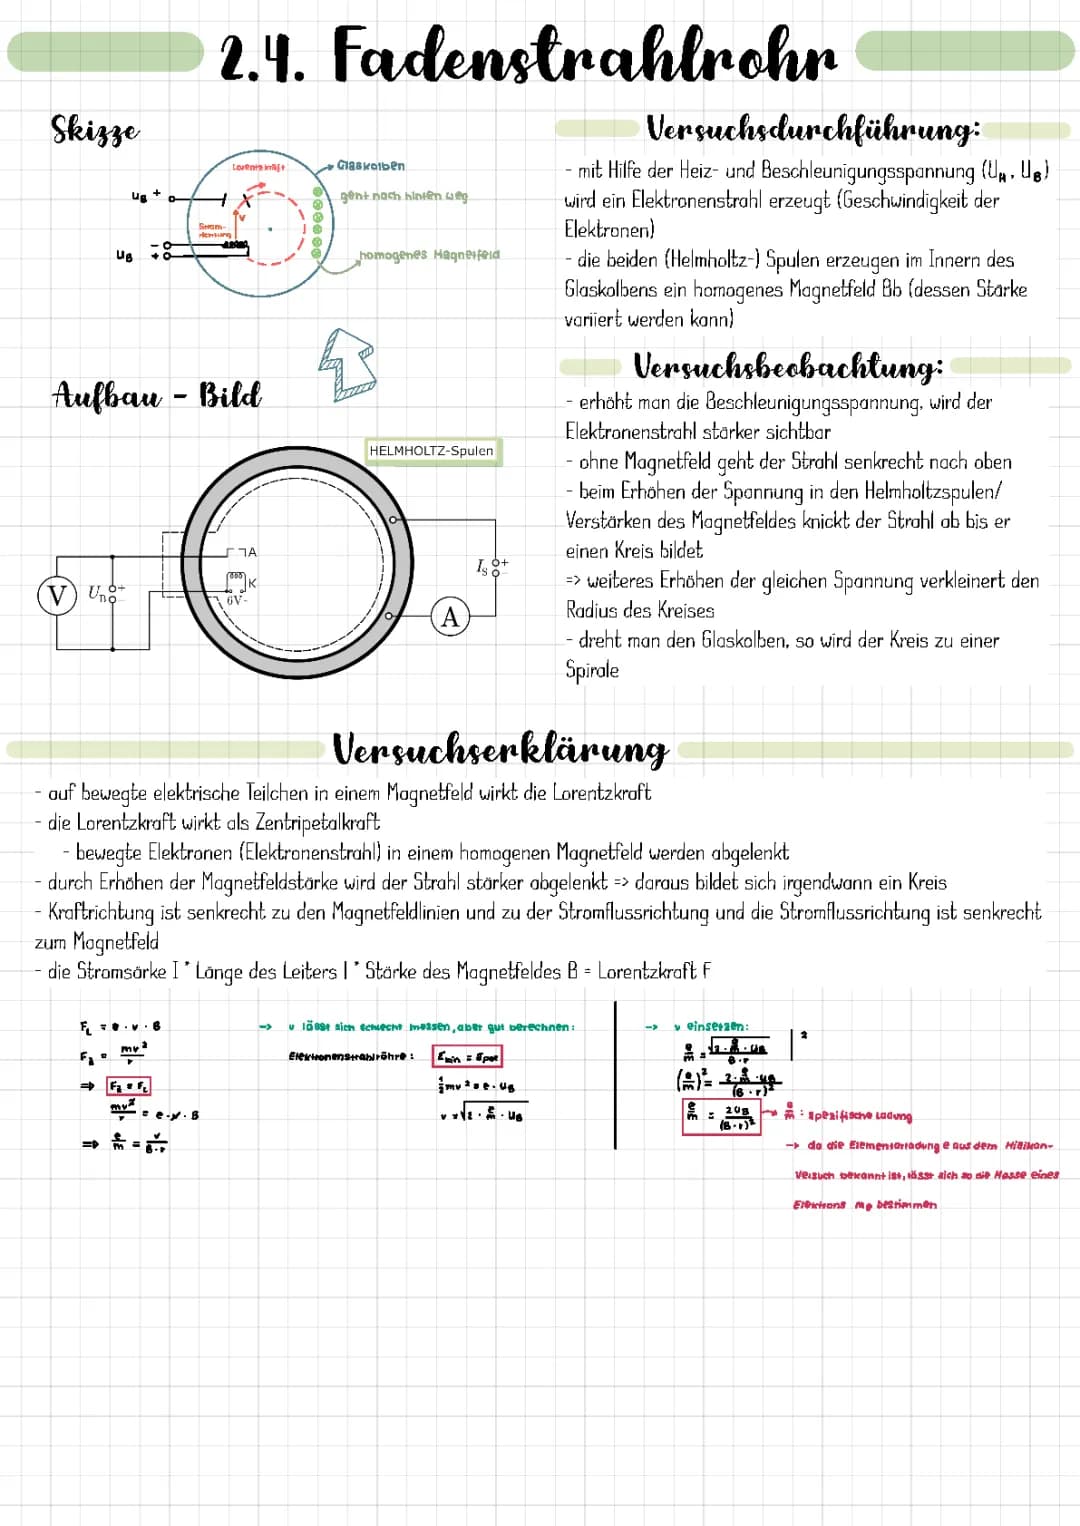 2.4. Fadenstrahlrohr
Skizze
Lorentzkraft
Glaskolben
geht nach hinten weg
UB +
v
Strom-
richtung
UB - +
homogenes Magnetfeld
Aufbau - Bild
HELMHOLTZ-Spulen
A
K
6V-
V
Un
+
-
Is
+
-
A
Versuchsdurchführung:
- mit Hilfe der Heiz- und Beschleunigungsspannung (UH, UB)
wird ein Elektronenstrahl erzeugt (Geschwindigkeit der
Elektronen)
- die beiden (Helmholtz-) Spulen erzeugen im Innern des
Glaskolbens ein homogenes Magnetfeld Bb (dessen Stärke
variiert werden kann)
Versuchsbeobachtung:
- erhöht man die Beschleunigungsspannung, wird der
Elektronenstrahl stärker sichtbar
- ohne Magnetfeld geht der Strahl senkrecht nach oben
- beim Erhöhen der Spannung in den Helmholtzspulen/
Verstärken des Magnetfeldes knickt der Strahl ab bis er
einen Kreis bildet
=> weiteres Erhöhen der gleichen Spannung verkleinert den
Radius des Kreises
- dreht man den Glaskolben, so wird der Kreis zu einer
Spirale
Versuchserklärung
- auf bewegte elektrische Teilchen in einem Magnetfeld wirkt die Lorentzkraft
- die Lorentzkraft wirkt als Zentripetalkraft
- bewegte Elektronen (Elektronenstrahl) in einem homogenen Magnetfeld werden abgelenkt
- durch Erhöhen der Magnetfeldstärke wird der Strahl stärker abgelenkt => daraus bildet sich irgendwann ein Kreis
- Kraftrichtung ist senkrecht zu den Magnetfeldlinien und zu der Stromflussrichtung und die Stromflussrichtung ist senkrecht
zum Magnetfeld
- die Stromsärke I * Länge des Leiters l * Stärke des Magnetfeldes B = Lorentzkraft F
FL = e · v · B
Fz = mv²/r
=> Fz = FL
mv²/r = e · v · B
=> e/m = v/B·r
-> v lässt sich schlecht messen, aber gut berechnen:
Elektronenstrahlröhre: Ekin = Epot
½mv² = e · UB
v = √2 · e/m · UB
-> v einsetzen:
e/m = √2 · e/m · UB / B·r | ²
(e/m)² = 2 · e/m · UB / (B · r)²
e/m = 2UB / (B·r)² -> e/m : spezifische Ladung
-> da die Elementarladung e aus dem Millikan-
Versuch bekannt ist, lässt sich so die Masse eines
Elektrons me bestimmen